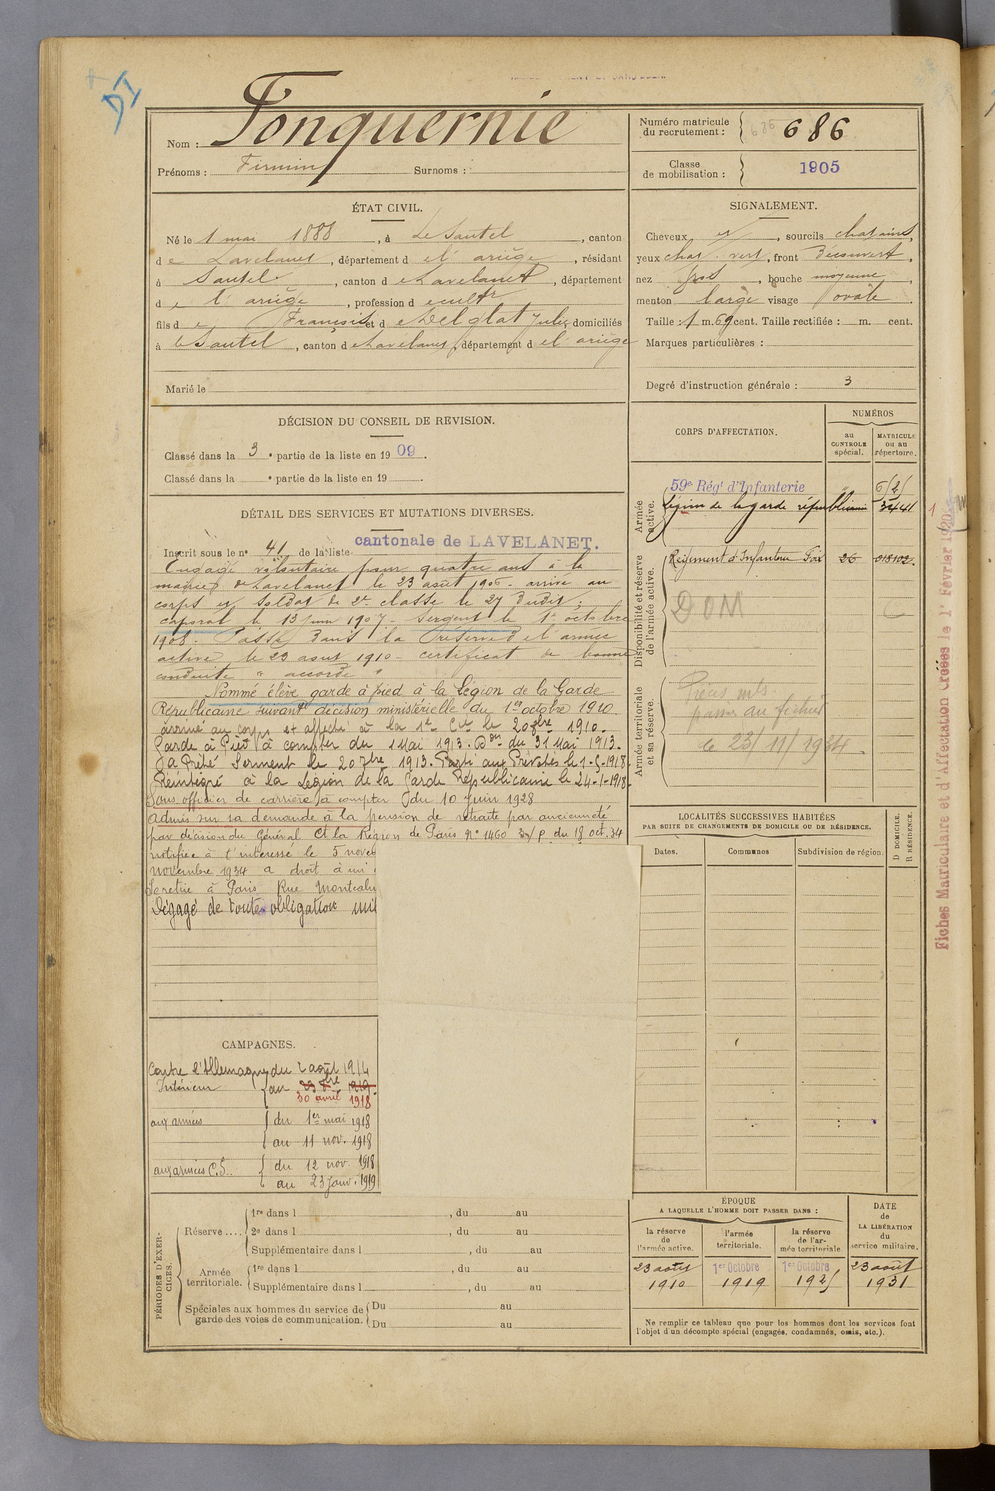 DI
Nom : Fonquernie
Prénoms : Firmin Surnoms :
Numéro matricule du recrutement : 686 686
Classe de mobilisation : 1905
ÉTAT CIVIL.
Né le 1 mai 1888, à Le Sautel, canton
de Lavelanet, département de l'ariège, résidant
à Sautel, canton de Lavelanet, département
de l'ariège, profession de cultr
fils de François et de Delglat Julie, domiciliés
à le Sautel, canton de Lavelanet, département de l'ariège
Marié le
SIGNALEMENT.
Cheveux et, sourcils chatains,
yeux chat. vert, front Découvert,
nez gros, bouche moyenne
menton large visage ovale
Taille : 1 m. 69 cent. Taille rectifiée : m. cent.
Marques particulières :
Degré d'instruction générale : 3
DÉCISION DU CONSEIL DE REVISION.
Classé dans la 3e partie de la liste en 1909.
Classé dans la e partie de la liste en 19 .
DÉTAIL DES SERVICES ET MUTATIONS DIVERSES.
Inscrit sous le no 41 de la liste cantonale de LAVELANET.
Engagé volontaire pour quatre ans à la
mairie de Lavelanet le 23 août 1906. arrivé au
corps et soldat de 2e classe le 27 dudit;
caporal le 13 juin 1907. Sergent le 1r octobre
1908. Passé dans la réserve de l'armée
active le 23 aout 1910 - certificat de bonne
conduite " accordé "
Nommé élève garde à pied à la Légion de la Garde
Républicaine suivant décision ministérielle du 1er octobre 1910
arrivé au corps et affecté à la 1re Cie le 20 9bre 1910.
Garde à Pied à compter du 1 Mai 1913. Don du 31 Mai 1913.
Sa Prêté Serment le 20 7bre 1913. Parti aux Prévôtés le 1-5-1918
Réintégré à la Légion de la Garde Républicaine le 24-1-1918
Sous officier de carrière à compter du 10 Juin 1928
admis sur sa demande à la pension de retraite par ancienneté
par décision du Général Ct la Région de Paris No 1460 3/P. du 18 oct. 34
notifiée à l'intéressé le 5 novem
novembre 1934 a droit à un
Se retire à Paris Rue Montcalm
Dégagé de toutes obligations mil
CORPS D'AFFECTATION.
NUMÉROS
au CONTROLE spécial.
MATRICULE ou au répertoire.
Armée active.
59e Régt d'Infanterie
Légion de la garde républicaine 3441
Disponibilité et réserve de l'armée active.
Régiment d'Infanterie Foix 26 018102.
DOM
Armée territoriale et sa réserve.
Pièces mls
passer au fichier
le 23/11/1934.
LOCALITÉS SUCCESSIVES HABITÉES
PAR SUITE DE CHANGEMENTS DE DOMICILE OU DE RÉSIDENCE.
Dates. Communes Subdivision de région.
D DOMICILE. R RÉSIDENCE.
Fiches Matriculaire et d'Affectation Créées le 1r Février 1920
CAMPAGNES.
Contre l'Allemagne du 2 août 1914
Intérieur au 30 avril 1918
aux armées du 1er mai 1918
au 11 nov. 1918
aux armées C.S. du 12 nov. 1918
au 23 janv. 1919
PÉRIODES D'EXERCICES.
Réserve .... 1re dans l , du au
2e dans l , du au
Supplémentaire dans l , du au
Armée territoriale. 1re dans l , du au
Supplémentaire dans l , du au
Spéciales aux hommes du service de garde des voies de communication. Du au
Du au
ÉPOQUE
A LAQUELLE L'HOMME DOIT PASSER DANS :
la réserve de l'armée active.
l'armée territoriale.
la réserve de l'armée territoriale
DATE de LA LIBÉRATION du service militaire.
23 août 1910
1er Octobre 1919
1er Octobre 1925
23 août 1931
Ne remplir ce tableau que pour les hommes dont les services font
l'objet d'un décompte spécial (engagés, condamnés, omis, etc.).